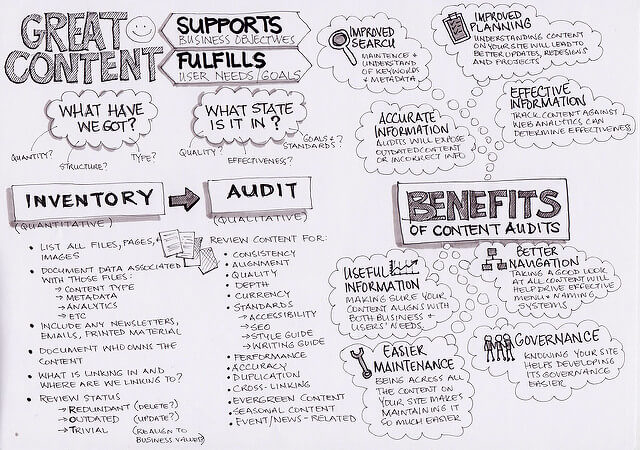 GREAT
CONTENT
SUPPORTS
BUSINESS OBJECTIVES
FULFILLS
USER NEEDS/GOALS
WHAT HAVE
WE GOT?
QUANTITY?
STRUCTURE?
TYPE?
WHAT STATE
IS IT IN?
QUALITY?
EFFECTIVENESS?
GOALS + ?
STANDARDS?
INVENTORY
(QUANTITATIVE)
• LIST ALL FILES, PAGES,
IMAGES
• DOCUMENT DATA ASSOCIATED
WITH THOSE FILES:
→ CONTENT TYPE
→ METADATA
→ ANALYTICS
→ ETC
• INCLUDE ANY NEWSLETTERS,
EMAILS, PRINTED MATERIAL
• DOCUMENT WHO OWNS THE
CONTENT
• WHAT IS LINKING IN AND
WHERE ARE WE LINKING TO?
• REVIEW STATUS
→ REDUNDANT (DELETE?)
→ OUTDATED (UPDATE?)
→ TRIVIAL (REALIGN TO
BUSINESS VALUES)
AUDIT
(QUALITATIVE)
REVIEW CONTENT FOR:
• CONSISTENCY
• ALIGNMENT
• QUALITY
• DEPTH
• CURRENCY
• STANDARDS
→ ACCESSIBILITY
→ SEO
→ STYLE GUIDE
→ WRITING GUIDE
• PERFORMANCE
• ACCURACY
• DUPLICATION
• CROSS-LINKING
• EVERGREEN CONTENT
• SEASONAL CONTENT
• EVENT/NEWS-RELATED
IMPROVED
SEARCH
MAINTENCE +
UNDERSTAND
OF KEYWORDS
+ METADATA
IMPROVED
PLANNING
UNDERSTANDING CONTENT
ON YOUR SITE WILL LEAD TO
BETTER UPDATES, REDESIGNS
AND PROJECTS
ACCURATE
INFORMATION
AUDITS WILL EXPOSE
OUTDATED CONTENT
OR INCORRECT INFO
EFFECTIVE
INFORMATION
TRACK CONTENT AGAINST
WEB ANALYTICS CAN
DETERMINE EFFECTIVENESS
BENEFITS
OF CONTENT AUDITS
USEFUL
INFORMATION
MAKING SURE YOUR
CONTENT ALIGNS WITH
BOTH BUSINESS +
USERS' NEEDS
BETTER
NAVIGATION
TAKING A GOOD LOOK
AT ALL CONTENT WILL
HELP DRIVE EFFECTIVE
MENU + NAMING
SYSTEMS
EASIER
MAINTENANCE
BEING ACROSS ALL
THE CONTENT ON
YOUR SITE MAKES
MAINTAINING IT
SO MUCH EASIER
GOVERNANCE
KNOWING YOUR SITE
HELPS DEVELOPING
ITS GOVERNANCE
EASIER